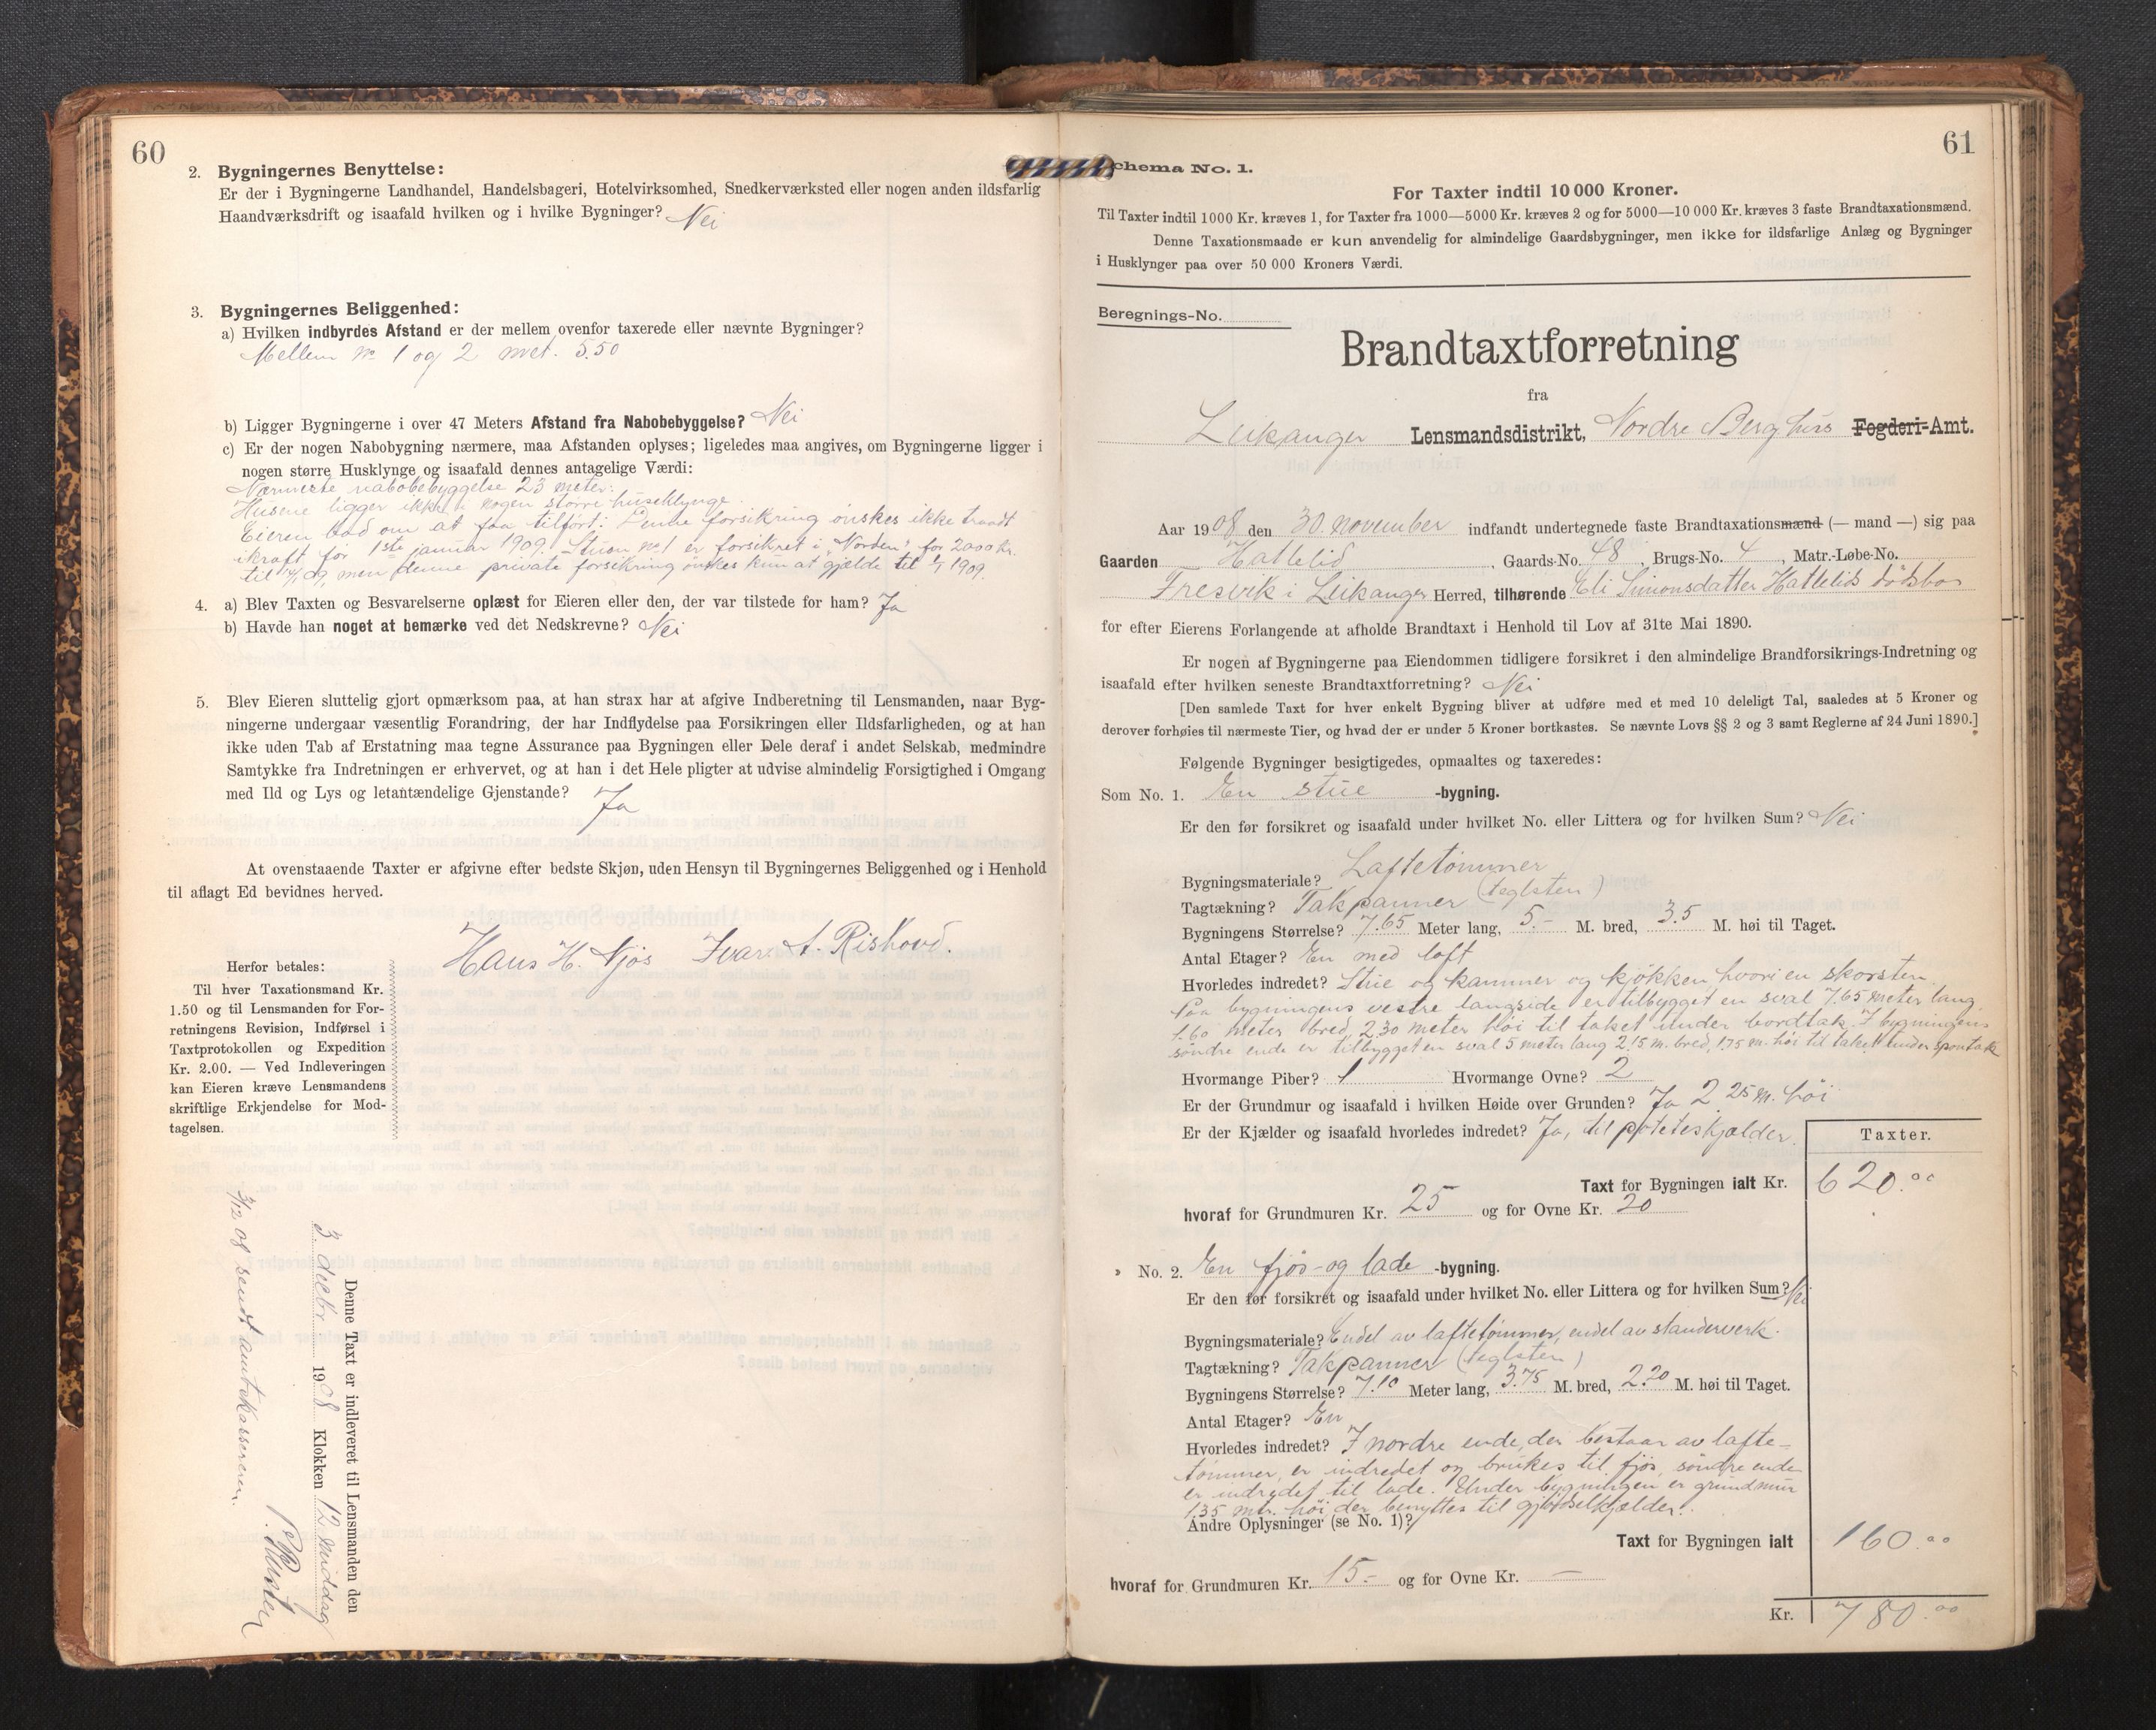 60
2. Bygningernes Benyttelse:
Er der i Bygningerne Landhandel, Handelsbageri, Hotelvirksomhed, Snedkerværksted eller nogen anden ildsfarlig
Haandværksdrift og isaafald hvilken og i hvilke Bygninger? Nei
3. Bygningernes Beliggenhed:
a) Hvilken indbyrdes Afstand er der mellem ovenfor taxerede eller nævnte Bygninger?
Mellem No 1 og 2 met. 5.50
b) Ligger Bygningerne i over 47 Meters Afstand fra Nabobebyggelse? Nei
c) Er der nogen Nabobygning nærmere, maa Afstanden oplyses; ligeledes maa angives, om Bygningerne ligger i
nogen større Husklynge og isaafald dennes antagelige Værdi:
Nærmeste nabobebyggelse 23 meter.
Husene ligger ikke i nogen större huseklynge.
Eieren bad om at faa tilført: Denne forsikring önskes ikke traadt
ikraft før 1ste januar 1909. Stuen no 1 er forsikret i "Norden" for 2000 kr.
til 14/ 09, men denne private forsikring önskes kun at gjælde til 1/1 1909.
4. a) Blev Taxten og Besvarelserne oplæst for Eieren eller den, der var tilstede for ham? Ja
b) Havde han noget at bemærke ved det Nedskrevne? Nei
5. Blev Eieren sluttelig gjort opmærksom paa, at han strax har at afgive Indberetning til Lensmanden, naar Byg-
ningerne undergaar væsentlig Forandring, der har Indflydelse paa Forsikringen eller Ildsfarligheden, og at han
ikke uden Tab af Erstatning maa tegne Assurance paa Bygningen eller Dele deraf i andet Selskab, medmindre
Samtykke fra Indretningen er erhvervet, og at han i det Hele pligter at udvise almindelig Forsigtighed i Omgang
med Ild og Lys og letantændelige Gjenstande? Ja
At ovenstaaende Taxter er afgivne efter bedste Skjøn, uden Hensyn til Bygningernes Beliggenhed og i Henhold
til aflagt Ed bevidnes herved.
Hans H. Njøs Ivar A. Rishovd.
Herfor betales:
Til hver Taxationsmand Kr.
1.50 og til Lensmanden for For-
retningens Revision, Indførsel i
Taxtprotokollen og Expedition
Kr. 2.00. — Ved Indleveringen
kan Eieren kræve Lensmandens
skriftlige Erkjendelse for Mod-
tagelsen.
Denne Taxt er indleveret til Lensmanden den
3 decbr 1908 Klokken 12 middag
3/12 08 sendt amtskassereren.
61
Schema No. 1.
For Taxter indtil 10 000 Kroner.
Til Taxter indtil 1000 Kr. kræves 1, for Taxter fra 1000—5000 Kr. kræves 2 og for 5000—10 000 Kr. kræves 3 faste Brandtaxationsmænd.
Denne Taxationsmaade er kun anvendelig for almindelige Gaardsbygninger, men ikke for ildsfarlige Anlæg og Bygninger
i Husklynger paa over 50 000 Kroners Værdi.
Beregnings-No.
Brandtaxtforretning
fra
Leikanger Lensmandsdistrikt, Nordre Berghus Fogderi-Amt.
Aar 1908 den 30. november indfandt undertegnede faste Brandtaxationsmænd (— mand —) sig paa
Gaarden Hattelid, Gaards-No. 48, Brugs-No. 4, Matr.-Løbe-No.
Fresvik i Leikanger Herred, tilhørende Eli Simonsdatter Hattelids dödsbo
for efter Eierens Forlangende at afholde Brandtaxt i Henhold til Lov af 31te Mai 1890.
Er nogen af Bygningerne paa Eiendommen tidligere forsikret i den almindelige Brandforsikrings-Indretning og
isaafald efter hvilken seneste Brandtaxtforretning? Nei
[Den samlede Taxt for hver enkelt Bygning bliver at udføre med et med 10 deleligt Tal, saaledes at 5 Kroner og
derover forhøies til nærmeste Tier, og hvad der er under 5 Kroner bortkastes. Se nævnte Lovs §§ 2 og 3 samt Reglerne af 24 Juni 1890.]
Følgende Bygninger besigtigedes, opmaaltes og taxeredes:
Som No. 1. En stue -bygning.
Er den før forsikret og isaafald under hvilket No. eller Littera og for hvilken Sum? Nei
Bygningsmateriale? Laftetömmer
Tagtækning? Takpanner (teglsten)
Bygningens Størrelse? 7.65 Meter lang, 5.- M. bred, 3.5 M. høi til Taget.
Antal Etager? En med loft
Hvorledes indredet? Stue og kammer og kjökken, hvori en skorsten
Paa bygningens vestre langside er tilbygget en sval 7.65 meter lang
1.60 meter bred, 2.30 meter höi til taket under bordtak. I bygningens
søndre ende er tilbygget en sval 5 meter lang 2.15 m. bred, 1.75 m. höi til taket under spontak
Hvormange Piber? 1 Hvormange Ovne? 2
Er der Grundmur og isaafald i hvilken Høide over Grunden? Ja 2.25 m. höi
Er der Kjælder og isaafald hvorledes indredet? Ja, til poteteskjælder.
Taxter.
Taxt for Bygningen ialt Kr. 620.00
hvoraf for Grundmuren Kr. 25 og for Ovne Kr. 20
» No. 2. En fjös- og lade -bygning.
Er den før forsikret og isaafald under hvilket No. eller Littera og for hvilken Sum? Nei
Bygningsmateriale? Endel av laftetömmer, endel av standerverk.
Tagtækning? Takpanner (teglsten)
Bygningens Størrelse? 7.10 Meter lang, 3.75 M. bred, 2.20 M. høi til Taget.
Antal Etager? En
Hvorledes indredet? I nordre ende, der bestaar av lafte-
tömmer, er indredet og brukes til fjös, söndre ende
er indredet til lade. Under bygningen er grundmur
1.35 mtr. höi der benyttes til gjödselkjælder.
Andre Oplysninger (se No. 1)?
Taxt for Bygningen ialt 160.00
hvoraf for Grundmuren Kr. 15.- og for Ovne Kr. —
Kr. 780.00